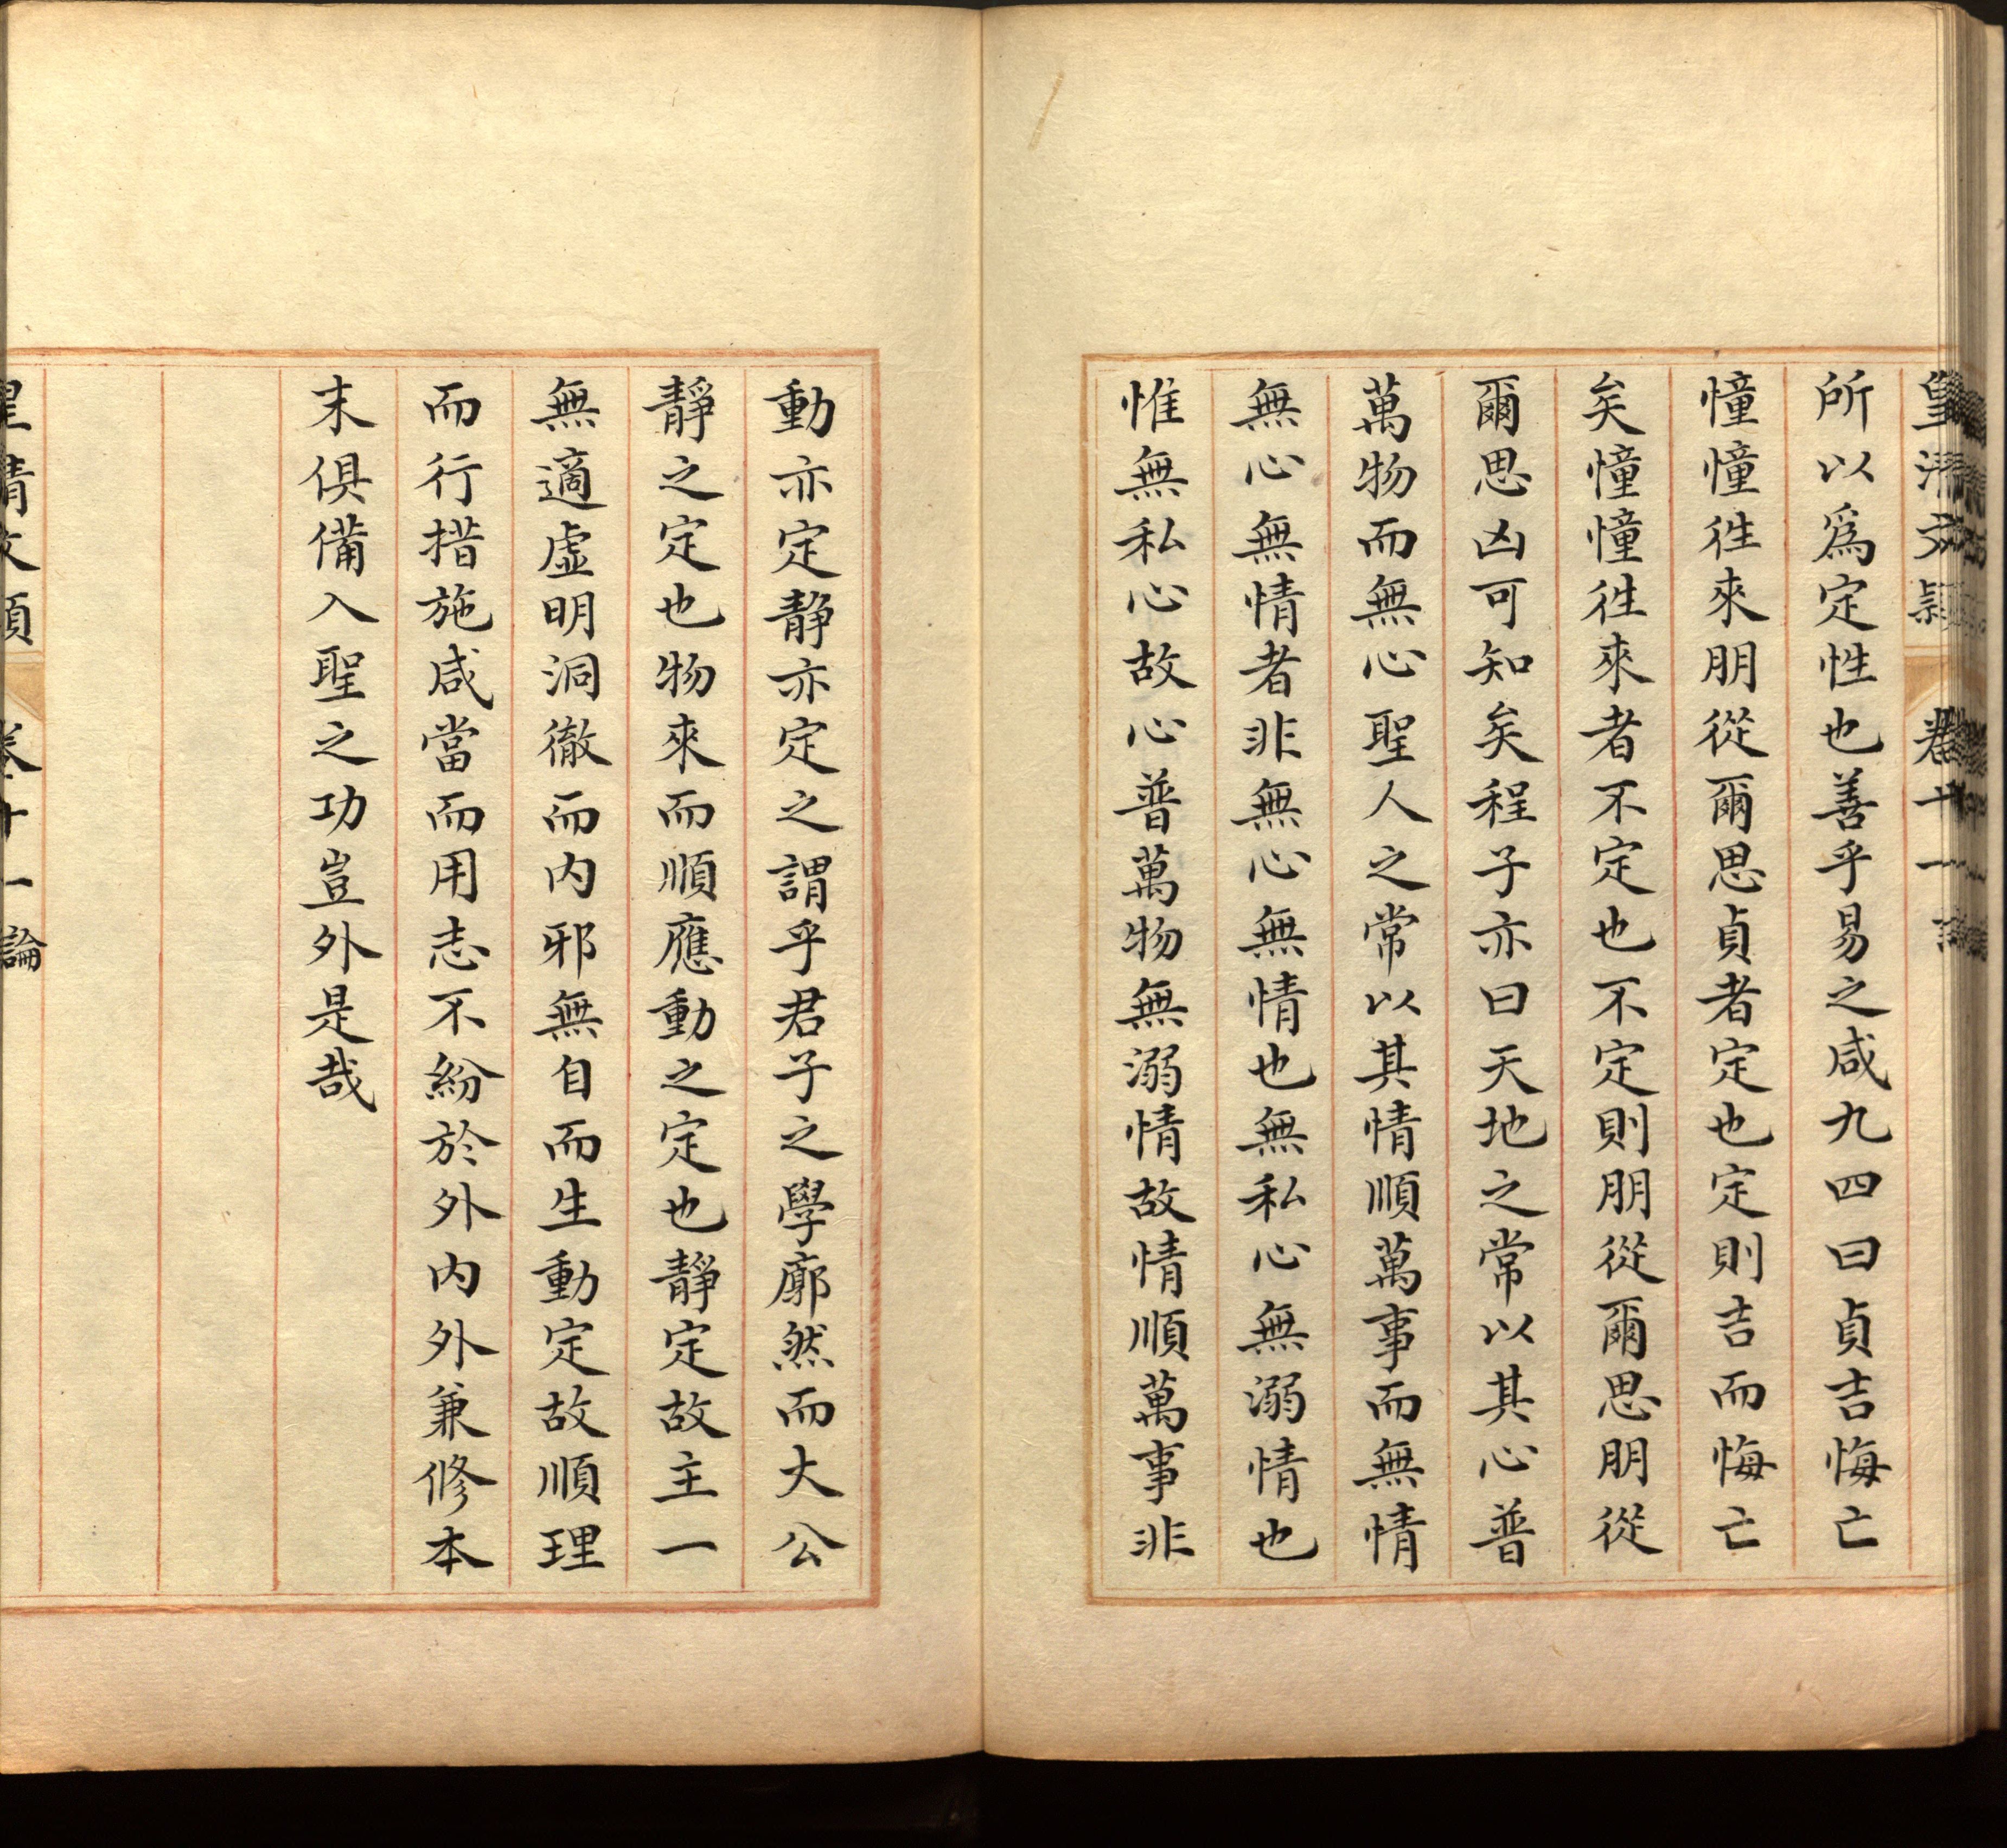 皇清文穎 卷十一 論
所以爲定性也善乎易之咸九四曰貞吉悔亡
憧憧徃來朋從爾思貞者定也定則吉而悔亡
矣憧憧徃來者不定也不定則朋從爾思朋從
爾思凶可知矣程子亦曰天地之常以其心普
萬物而無心聖人之常以其情順萬事而無情
無心無情者非無心無情也無私心無溺情也
惟無私心故心普萬物無溺情故情順萬事非
動亦定靜亦定之謂乎君子之學廓然而大公
靜之定也物來而順應動之定也靜定故主一
無適虛明洞徹而内邪無自而生動定故順理
而行措施咸當而用志不紛於外内外兼修本
末俱備入聖之功豈外是哉
皇清文穎 卷十一 論